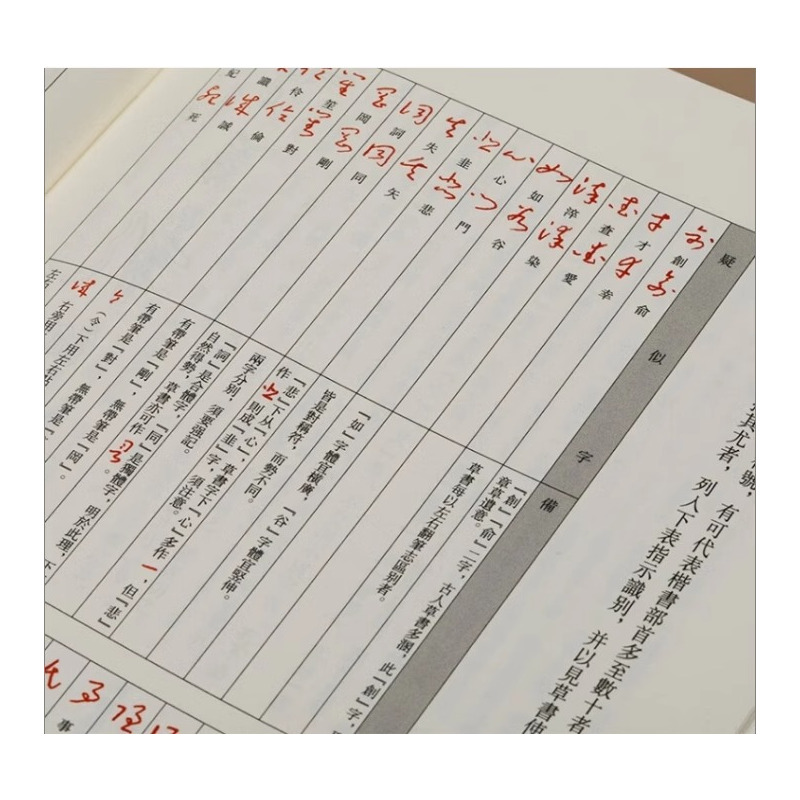 號，有可代表楷書部首多至數十者
其尤者，列入下表指示識別，并以見草書使
疑似字
備
創 俞
「創」「俞」二字，古人草書多溷，此「創」字，
章草遺意。
才 幸
草書每以左右翻筆志區別者。
查 愛
滓 染
如 谷
「如」字體宜橫廣，「谷」字體宜竪伸。
心 門
皆是對稱符，而勢不同。
韭 悲
「悲」下从「心」，草書字下「心」多作一，但「悲」
作 則成「韭」字，須注意。
失 矢
兩字分別，須要强記。
詞 同
「詞」是合體字，「同」是獨體字，明於此理，下
自然得勢，草書亦可作 。
岡 剛
有帶筆是「剛」，無帶筆是「岡」。
笙 對
有帶筆是「對」，
伶 倫
（令）下用左右
識 誠
右旁用
紀 死
左右
事